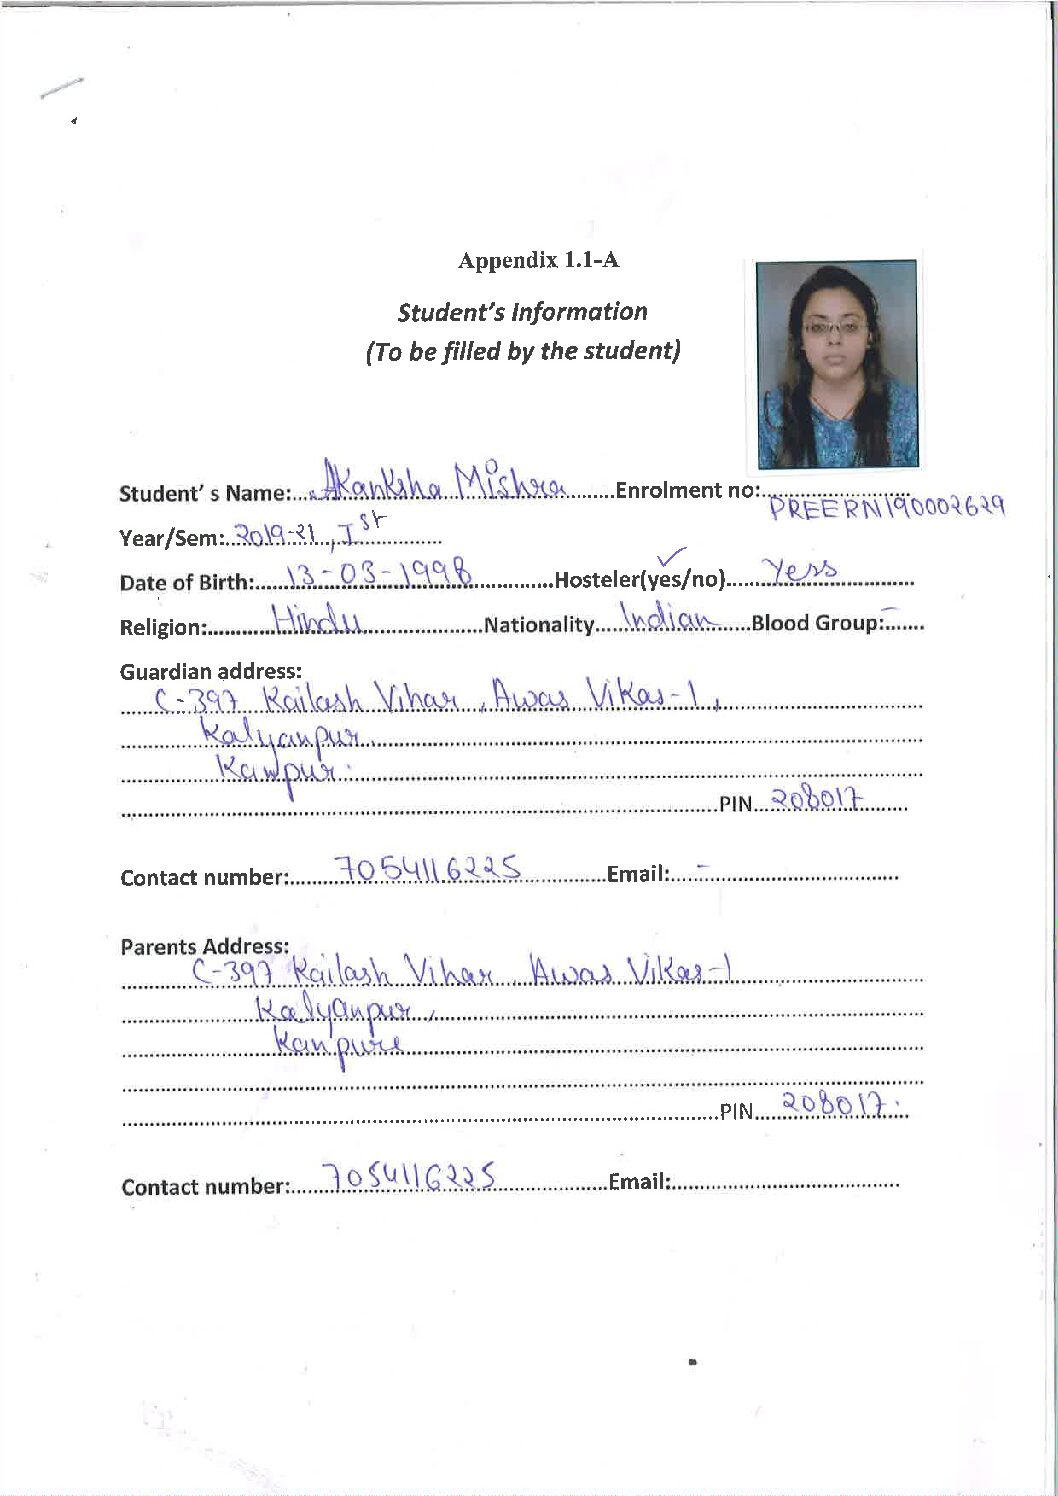 Appendix 1.1-A
Student's Information
(To be filled by the student)
Student' s Name:...Akanksha Mishra........Enrolment no:........................
PREERN190002629
Year/Sem:..2019-21..,Ist..............
Date of Birth:......13-03-1998...............Hosteler(yes/no).......Yess...............
✓
Religion:............Hindu.....................Nationality.....Indian......Blood Group:-.......
Guardian address:
C-397 Kailash Vihar, Awas Vikas-1,
Kalyanpur
Kanpur.
PIN....208017........
Contact number:..........7054116225...............Email:.....-..............................
Parents Address:
C-397 Kailash Vihar, Awas Vikas-1
Kalyanpur,
Kanpure
PIN.....208017.....
Contact number:......7054116225....................Email:.......................................